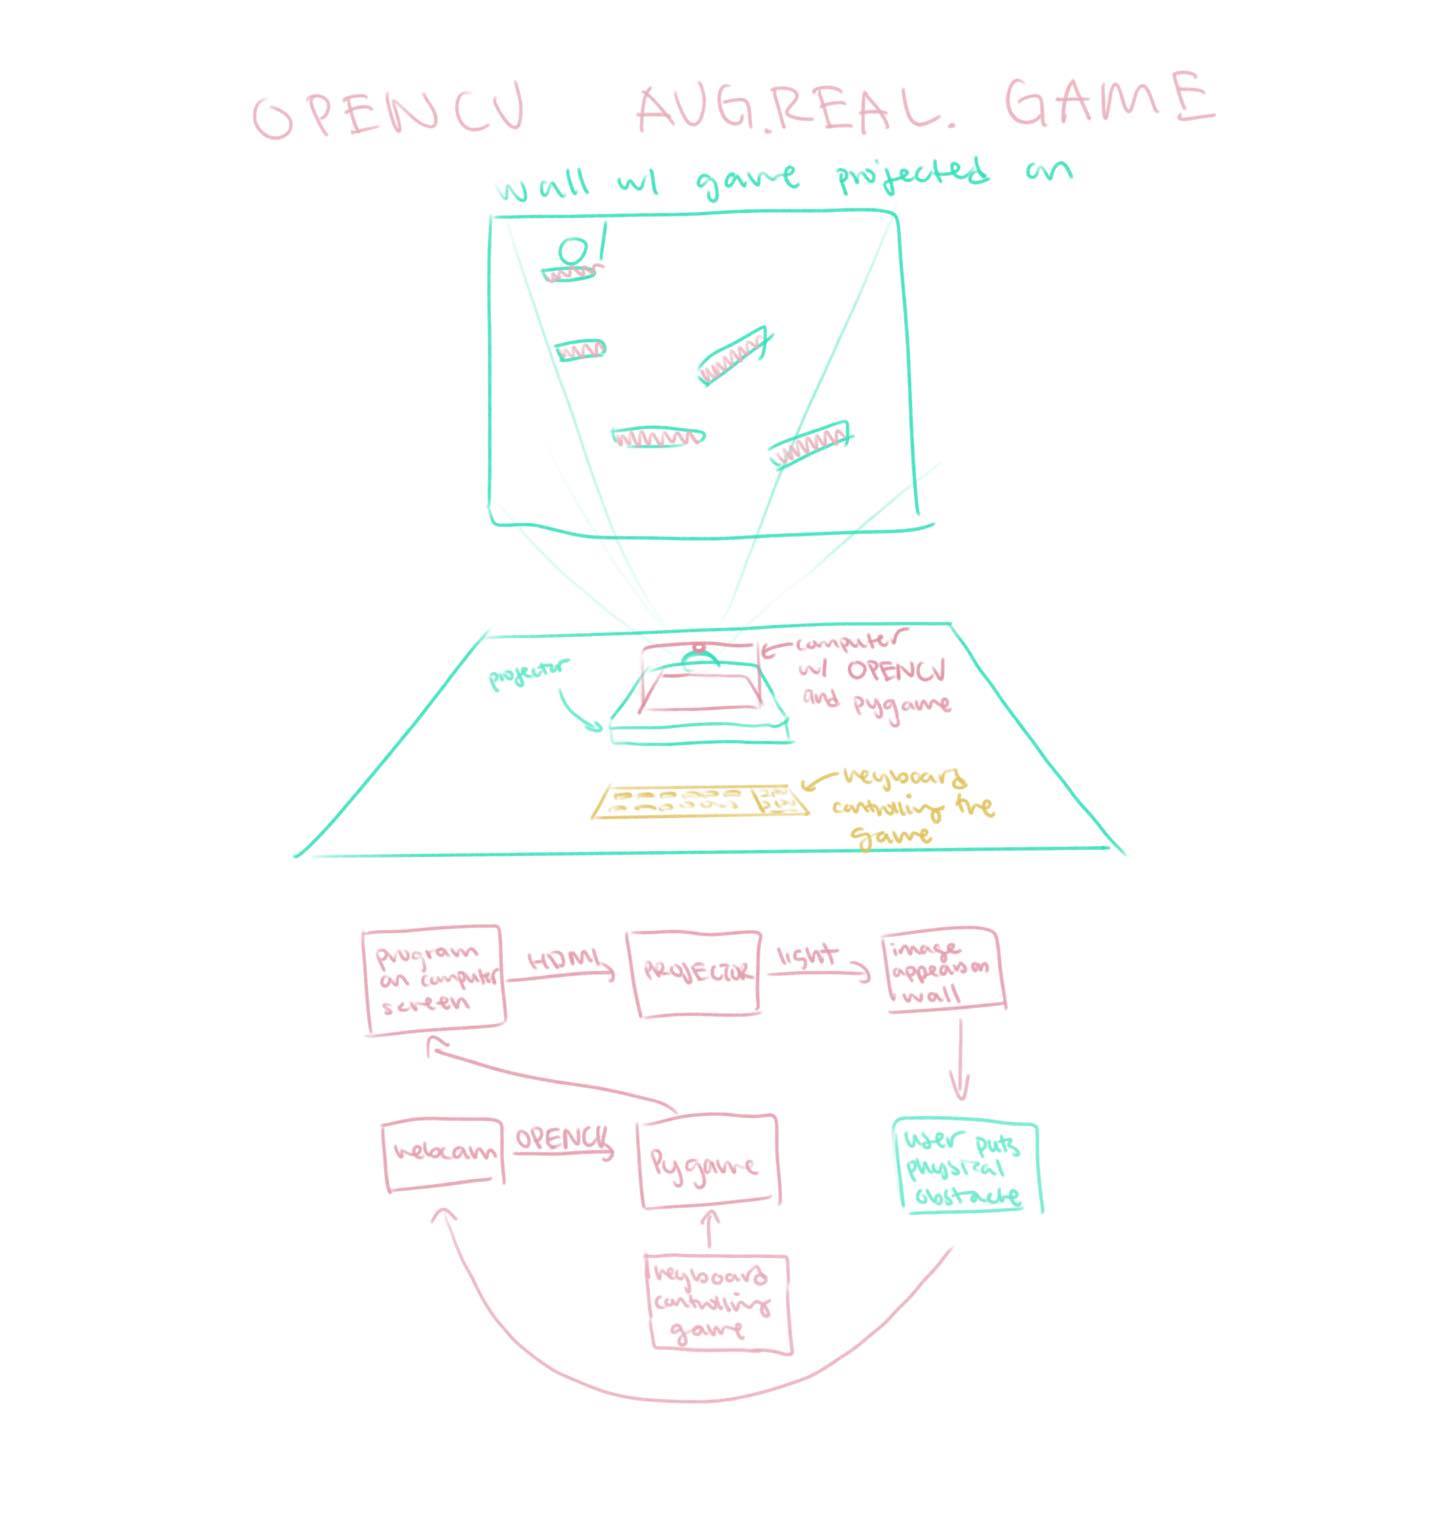 OPENCV AUG.REAL. GAME
wall w/ game projected on
projector
computer
w/ OPENCV
and pygame
keyboard
controlling the
game
program
on computer
screen
HDMI
PROJECTOR
light
image
appears on
wall
webcam
OPENCV
Pygame
user puts
physical
obstacle
keyboard
controlling
game